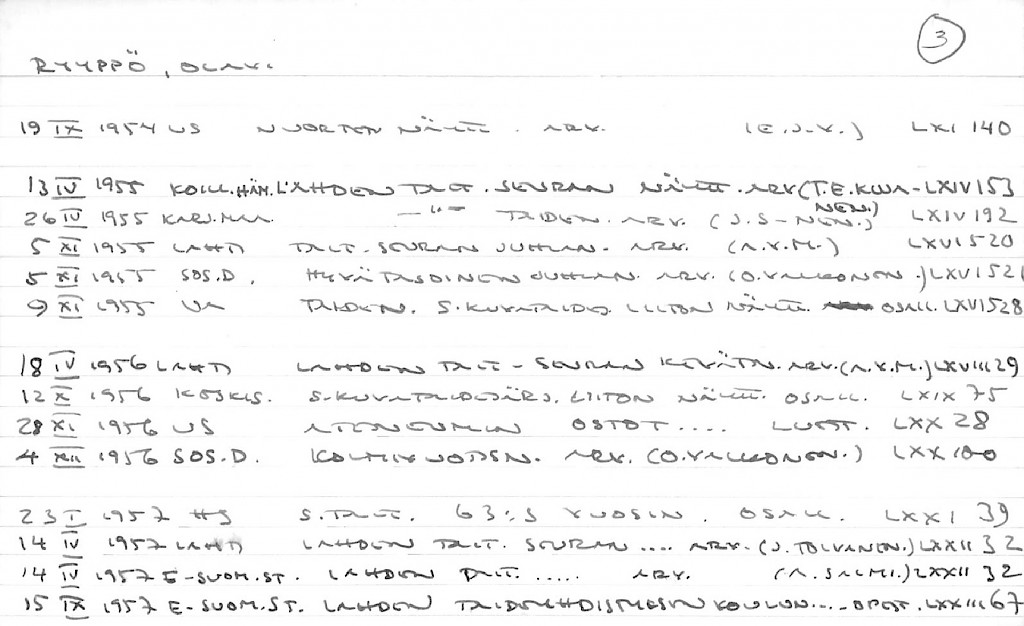 3
RYYPPÖ, OLAVI
19 IX 1954 US NUORTEN NÄYTT. ARV. (E.J.V.) LXI 140
13 IV 1955 KOILL.HÄM. LAHDEN TAIT. SEURAN NÄYTT. ARV (T.E. KIVA- LXIV 153
NEN.)
26 IV 1955 KARJ.MAA. —"— TAIDEN. ARV. (J.S-NEN.) LXIV 192
5 XI 1955 LAHTI TAIT. SEURAN JUHLAN. ARV. (A.V.M.) LXVI 520
5 XI 1955 SOS.D. HYVÄTASOINEN JUHLAN. ARV. (O.VALKONEN.) LXVI 521
9 XI 1955 TAIDEN. S.KUVATAID. LIITON NÄYTT. OSALL. LXVI 528
18 IV 1956 LAHTI LAHDEN TAIT- SEURAN KEVÄTN. ARV. (A.V.M.) LXVIII 29
12 X 1956 KESKIS. S.KUVATAIDEJÄRJ. LIITON NÄYTT. OSALL. LXIX 75
28 XI 1956 US ATENEUMIN OSTOT.... LUETT. LXX 28
4 XII 1956 SOS.D. KOLMIVUODEN. ARV. (O.VALKONEN.) LXX 100
23 I 1957 HS S.TAIT. 63:S VUOSIN. OSALL. LXXI 39
14 IV 1957 LAHTI LAHDEN TAIT. SEURAN .... ARV. (J. TOLVANEN.) LXXII 32
14 IV 1957 E-SUOM.ST. LAHDEN TAIT. ..... ARV. (A. SALMI.) LXXII 32
15 IX 1957 E-SUOM.ST. LAHDEN TAIDEYHDISTYKSEN KOULUN.... OPETT. LXXIII 67